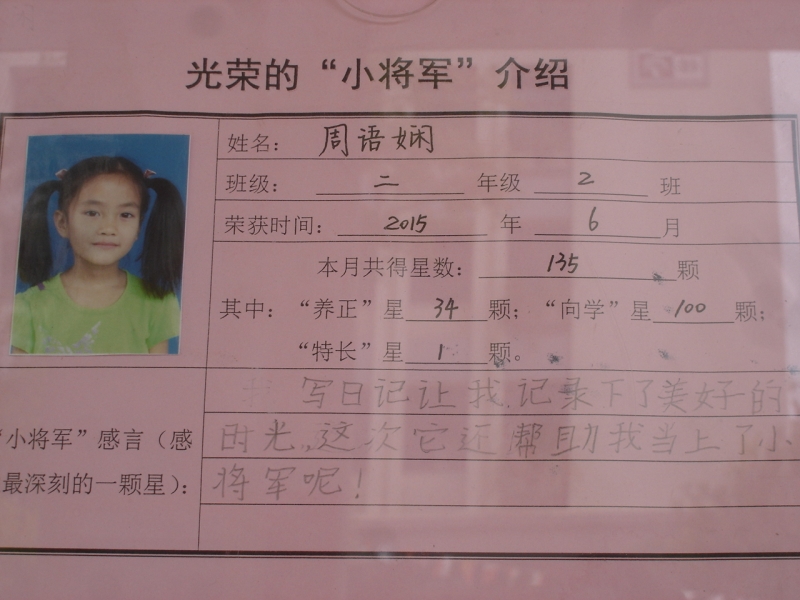 光荣的“小将军”介绍
姓名：周语娴
班级：二年级2班
荣获时间：2015年6月
本月共得星数：135颗
其中：“养正”星34颗；“向学”星100颗；
“特长”星1颗。
“小将军”感言（感
最深刻的一颗星）：
写日记让我记录下了美好的
时光，这次它还帮助我当上了小
将军呢！